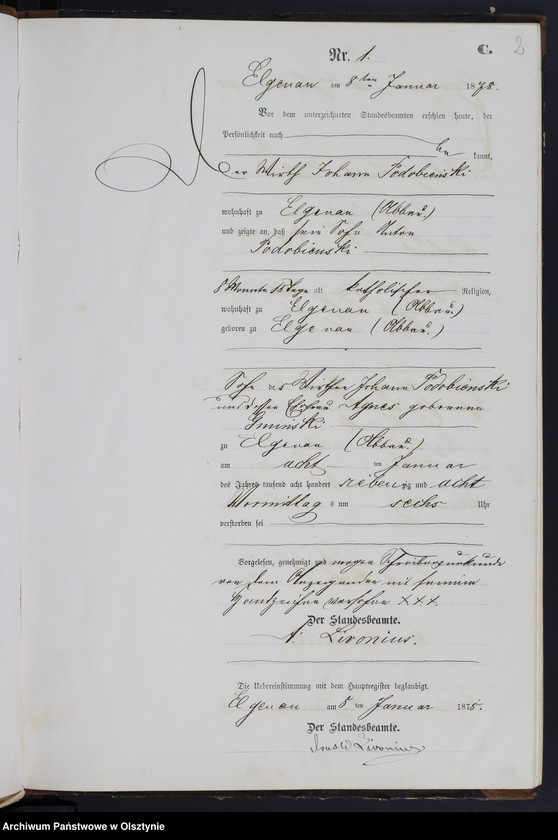 C. 2
Nr. 1.
Elgenau am 8ten Januar 1878.
Vor dem unterzeichneten Standesbeamten erschien heute, der
Persönlichkeit nach
be kannt,
der Wirth Johann Podobienski
wohnhaft zu Elgenau (Abbau.)
und zeigte an, daß sein Sohn Anton
Podobienski
8 Monate 15 Tage alt katholischer Religion,
wohnhaft zu Elgenau (Abbau.)
geboren zu Elgenau (Abbau.)
Sohn des Wirthen Johann Podobienski
und dessen Ehefrau Agnes geborenen
zu Elgenau (Abbau.)
am acht ten Januar
des Jahres tausend acht hundert siebenzig und acht
Vormittag s um sechs Uhr
verstorben sei
Vorgelesen, genehmigt und wegen Schreibensunkunde
von dem Anzeigenden mit seinem
Handzeichen versehen XXX.
Der Standesbeamte.
A. Livonius.
Die Uebereinstimmung mit dem Hauptregister beglaubigt.
Elgenau am 8 ten Januar 1878.
Der Standesbeamte.
Arnold Livonius
Archiwum Państwowe w Olsztynie